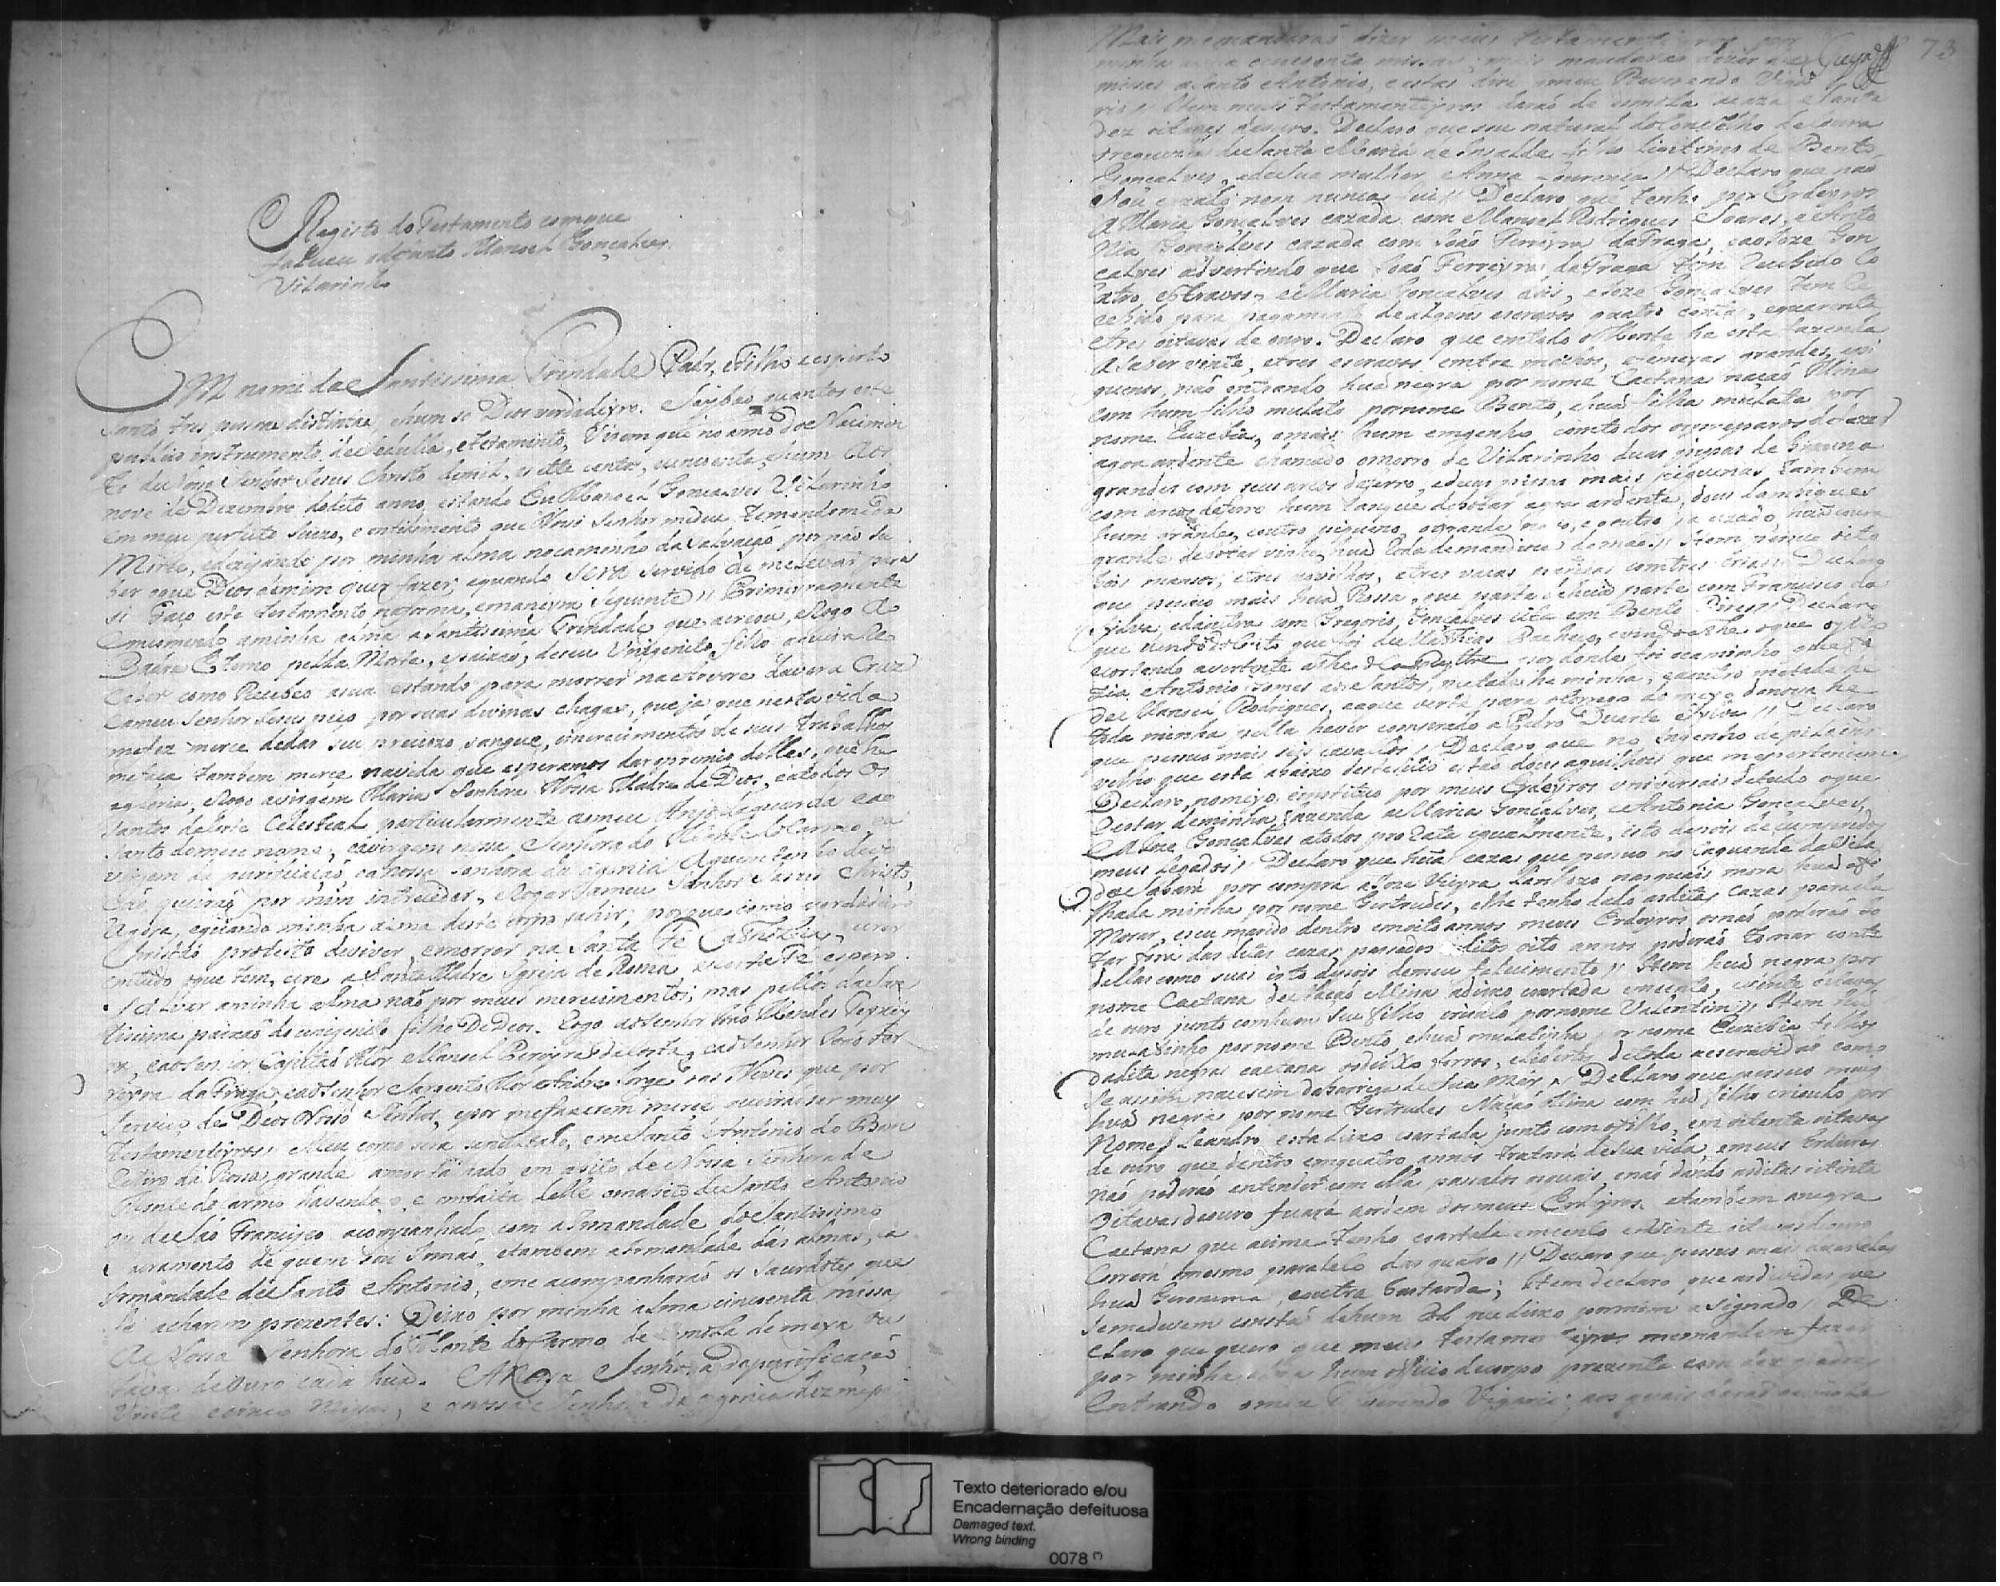 Registo do Testamento comque
faleceu odefunto Manoel Gonçalves
Vilarinho
EM nome da Santissima Trindade Padre, Filho e espirito
Santo tres pesoas distintas, ehum só Deos verdadeyro. Saybão quantos este
publico instrumento decedulla, etestamento, Virem que no anno do Nacimen
to denosso Senhor Jesus Christo demil, esette centos, secincoenta, ehum aos
nove de Dezembro dodito anno, estando Eu Manoel Gonçalves Vilarinho
em meu perfeito Juizo, e entendimento que Noso Senhor medeu, temendome da
Morte, edezejando por minha alma nocaminho da salvação por não sa
ber oque Deos demim quer fazer, equando será servido de melevar para
si Faço este testamento naforma, emaneyra seguinte // Primeyramente
emcomendo aminha alma aSantissima Trindade que acreou, eRogo ao
Padre Eterno pella Morte, epaixão, deseu Unigenito filho aqueira Re
ceber como Recebeo asua estando para morrer na Arvore daVera Cruz
eameu Senhor Jesus peço por suas divinas chagas, que já que nesta vida
mefez merce dedar seu preciozo sangue, emerecimentos de seus trabalhos
mefaça tambem merce navida que esperamos dar opremio delles, que he
agloria, eRogo aVirgem Maria Senhora Nossa Madre de Deos, eatodos Os
Santos daCorte Celestial particularmente aomeu Anjo daguarda eao
Santo demeu nome, eavirgem nossa Senhora do Monte do Carmo, ea
virgem da purificação eaNossa Senhora da agonia aquem tenho devo
ção queirão por mim interceder, eRogar Aomeu Senhor Jesus Christo
Agora, equando minha alma deste corpo sahir; porque como verdadeiro
Christão protesto deviver, emorrer na Santa Fé Catholica, ecrer
emtudo oque tem, ecre a Santa Madre Igreja de Roma, enesta Fé espero
salvar aminha alma não por meus merecimentos; mas pellos daSan
tissima paixão do unigenito filho DeDeos. Rogo aoSenhor João Mendes Teyxey
ra, eaoSenhor Capitão Mor Manoel Pereyra da Costa, eaoSenhor João Fer
reyra da Fraga, eaosenhor Sargento Mor Andre Jorge das Neves que por
serviço de Deos Nosso Senhor, epor mefazerem merce queirão ser meus
Testamenteyros // Meu corpo será sepultado, emSanto Antonio do Bom
Retiro da Rossa grande amortalhado em abito de Nossa Senhora do
Monte do Carmo havendo o, e emfalta delle emabito deSanto Antonio
ou deSão Francisco acompanhado com aIrmandade doSantissimo
Sacramento de quem sou Irmão, etambem aIrmandade das almas, ea
Irmandade deSanto Antonio, eme acompanharão os Sacerdotes que
se acharem prezentes: Deixo por minha alma cincoenta missas
A Nossa Senhora do Monte do Carmo de esmola de meya oy
tava de ouro cada huã. A Nossa Senhora da purificação
Vinte ecinco Missas, e anossa Senhora da agonia dez missas
73
Mais memandarão dizer meus testamenteyros por
minha alma cincoenta missas; mais mandarão dizer
missas aSanto Antonio, eestas dira omeu Reverendo Viga
rio // Item meus Testamenteyros darão de esmola acaza eSanta
dez oitavas deouro. Declaro que sou natural doConcelho deCoura
freguezia deSanta Maria de Insalde filho ligitimo de Bento
Gonçalves, edeSua mulher Anna Lourença // Declaro que não
Sou cazado nem nunca fui // Declaro que tenho por Erdeyros
A Maria Gonçalves cazada com Manoel Rodrigues Soares, e Anto
nia Gonçalves cazada com João Ferreyra daFraga, eaoJoze Gon
calves advertindo que João Ferreyra da Fraga tem Recebido Co
atro esCravos, eMaria Gonçalves dois, eJoze Gonçalves tem Re
cebido para pagamento dealguns escravos quatro centas, equarenta
etres oitavas de ouro. Declaro que emtodo oMonte ha esta fazenda
aSaber vinte, etres escravos entre machos, efemeyas grandes, epi
quenos, não entrando huã negra por nome Caetana nação Mina
com hum filho mulato pornome Bento, ehuã filha mulata por
nome Euzebia, emais hum emgenho comtodos os preparos defazer
agoaardente chamado omorro de Vilarinho duas pipas de
grandes com seus arcos deferro, eduas pipas mais piquenas tambem
com arcos deferro hum tanque debotar agoa ardente, dous lambiques
hum grande, eoutro piquino, ogrande novo, eooutro ja uzado,
grande debotar vinho, huã Roda demandioca demão // Item
bois mansos, etres novilhos, etres vacas comtres crias // Declaro
que posuo mais huã Rossa, que parte dehuã parte com Francisco da
Sylva, edaoutra com Gregorio Gonçalves eItem Bento Pires // Declaro
que vendo oSitio que foi deMathias Pacheco,
cortando avertente athe
zia Antonio Gomes dos Santos, metade he minha, eaoutra metade he
de Manoel Rodrigues, eaque verte para oCorrego do meyo danova he
toda minha pella haver comprado a Pedro Duarte Sylva // Declaro
que posuo mais seis cavalos // Declaro que no Ingenho depilões
velho que está abaixo destesitio estão dous aguilhões que mepertencem
Declaro, nomeyo, einstituo por meus Erdeyros universais detudo oque
Restar deminha fazenda aMaria Gonçalves, eAntonia Gonçalves,
eAJoze Gonçalves atodos pro Rata igualmente, isto depois decumpridos
meus legados // Declaro que huãs cazas que posuo no Caquende daVila
doSabará por compra aJoze Vieyra Cardozo nasquais mora huã afi
lhada minha por nome Gertrudes, elhe tenho dado asditas cazas paraella
Morar, eseu marido dentro emoito annos meus Erdeyros, osnão poderão bo
tar fóra das ditas cazas, pasados oditos oito annos poderão tomar conta
dellas como suas isto depois demeu falecimento // Item huã negra por
nome Caetana deNação Mina adeixo coartada emcento, evinte oitavas
de ouro junto comhum seu filho crioulo pornome Valentim // Item hũ
mulatinho pornome Bento, ehuã mulatinha por nome Euzebia filhos
dadita negra caetana osdeixo forros, elibertos detoda aescravidão como
se assim nacesem dabarriga de Sua Mãy // Declaro que posuo mais
huã negra por nome Gertrudes Nação Mina com hũ filho crioulo por
Nome Leandro esta deixo coartada junto comofilho, em oitenta oitavas
de ouro que dentro emquatro annos tratará desua vida, emeus Erdeyros
não poderão entender com ella pasados osquais, enão dando asditas oitenta
Oitavas deouro ficará aordem dosmeus Erdeyros, etambem anegra
Caetana que asima tenho coartada emcento evinte oitavas deouro
Correrá omesmo paralelo dos quatro // Declaro que posuo mais duas
huã Geronima, eoutra Bastarda; Item declaro, que asdividas que
semedevem constão dehum Rol quedeixo pormim asignado // De
claro que quero que meus testamenteyros memandem fazer
por minha alma hum oficio decorpo prezente com dez padres
Entrando omeu Reverendo Vigario; aos quais
Texto deteriorado e/ou
Encadernação defeituosa
Damaged text.
Wrong binding
0078